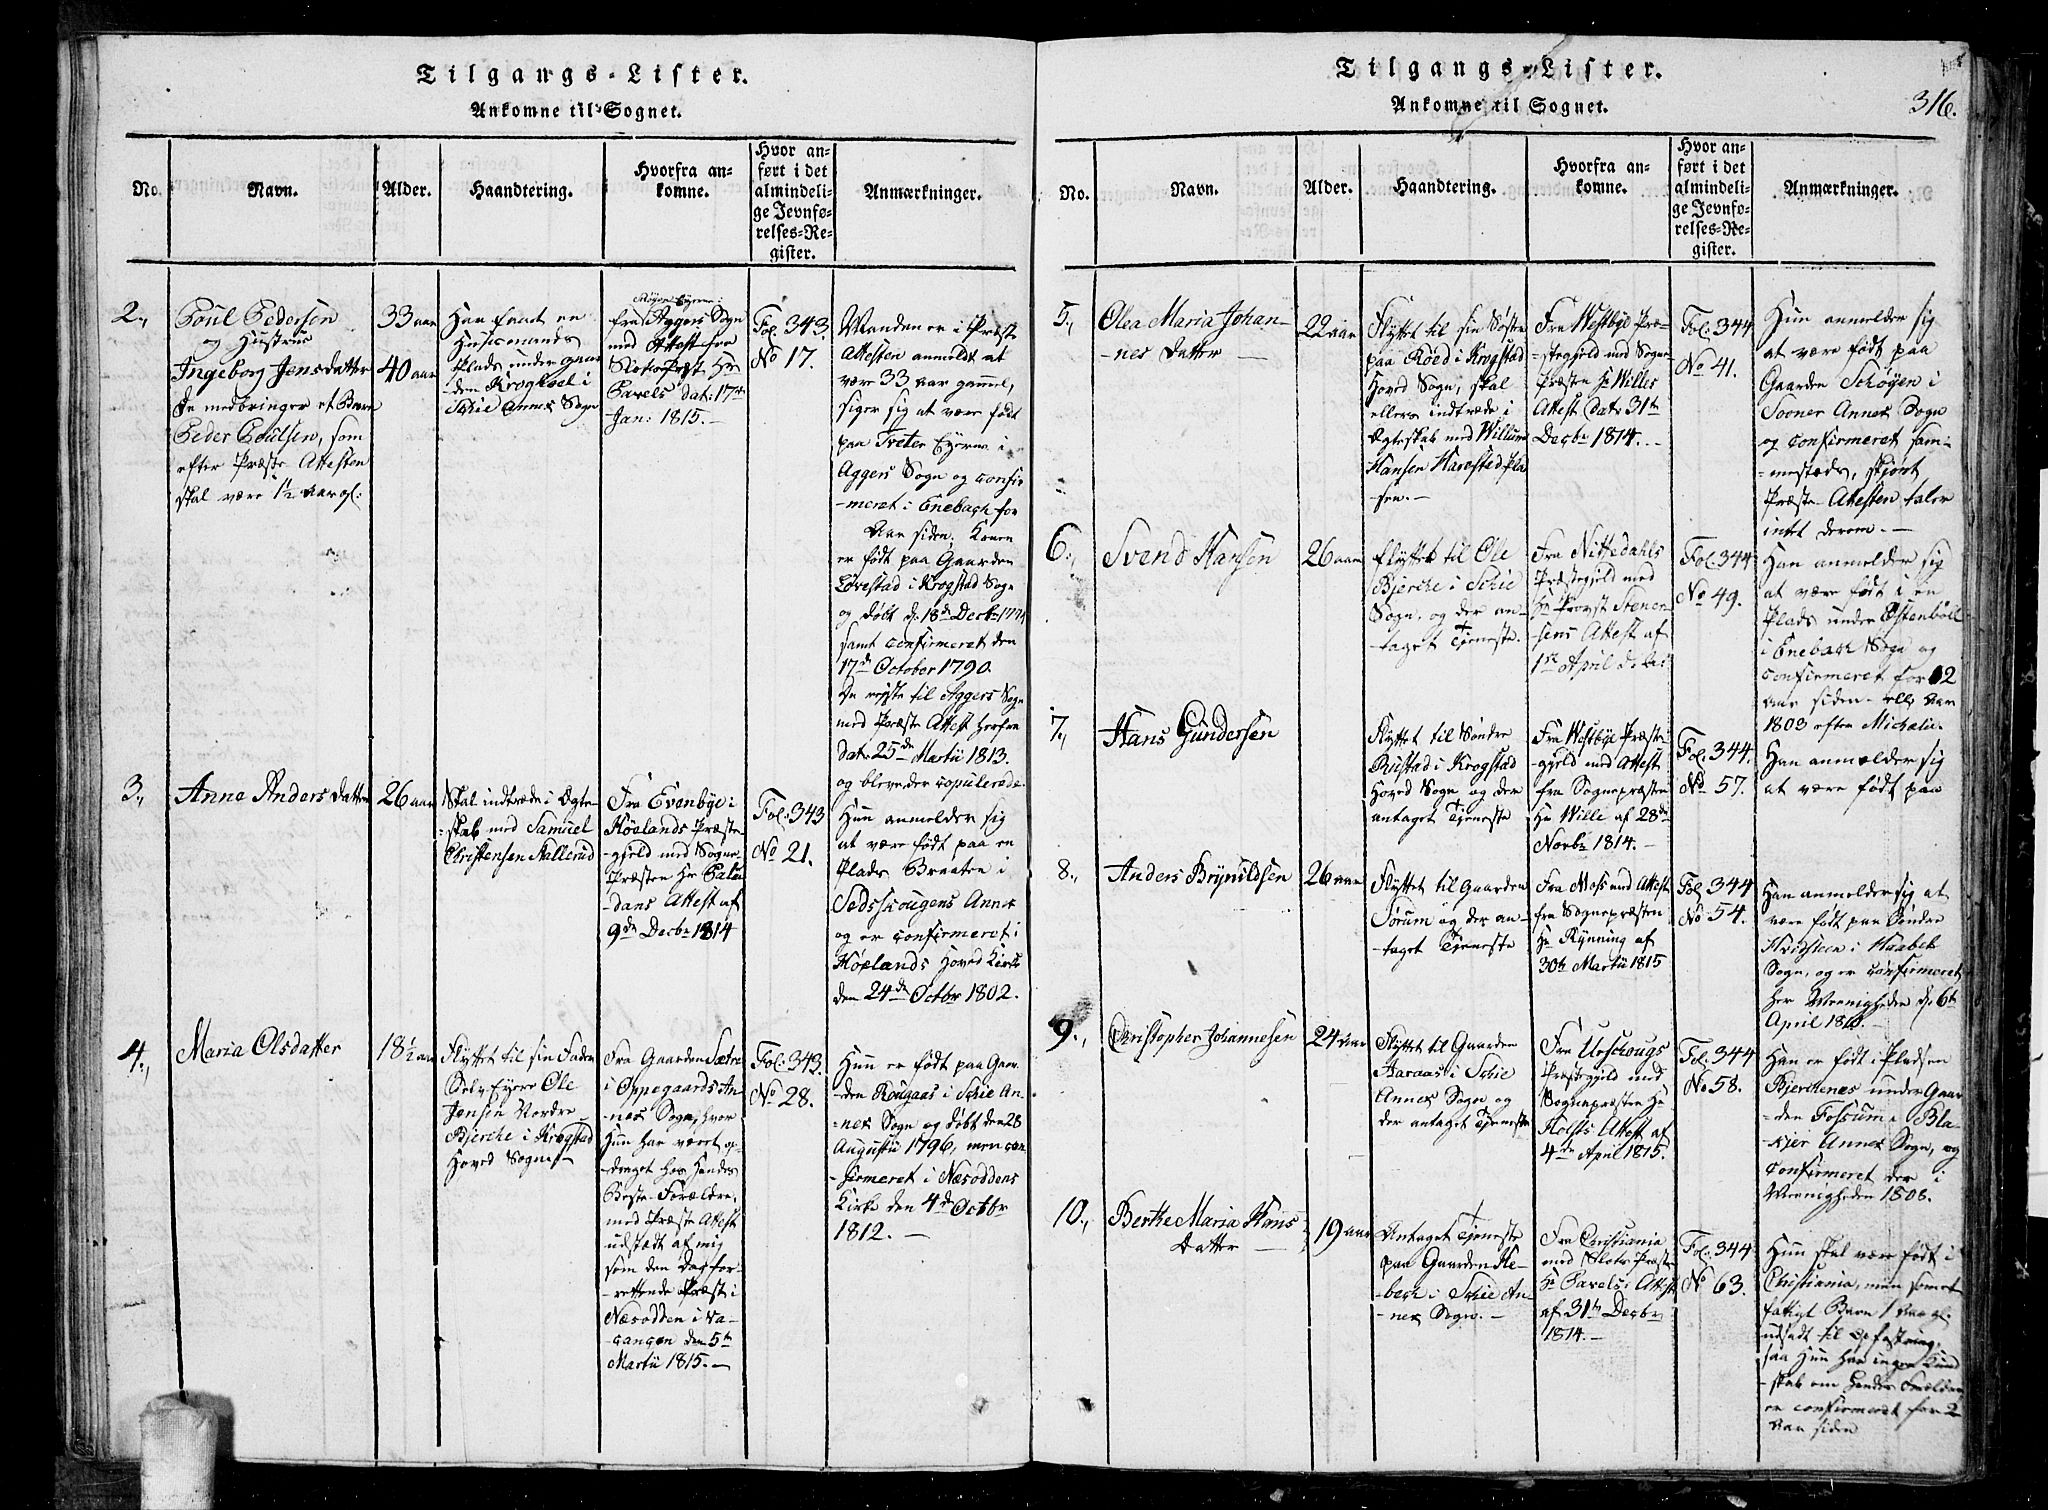 Tilgangs-Lister.
Ankomne til Sognet.
No.
Navn.
Alder.
Haandtering.
Hvorfra an-
komne.
Hvor an-
ført i det
almindeli-
ge Jevnfø-
relses-Re-
gister.
Anmærkninger.
2.,
Poul Pedersen
og Hustrue
Ingeborg Jensdatter
De medbringer et Barn
Peder Poulsen, som
efter Præste Attesten
skal være 1½ Aar gl:
33 aar
40 aar
Har faaet en
Huusmands
Plads under Gaar
den Krogsbøl i
Schie Annex Sogn
fra Aggers Sogn
med Attest fra
Slotspræst Hr
Pavels dat: 17de
Jan: 1815.-
Fol. 343.
No 17.
Manden er i Præste
Attesten anmeldt at
være 33 aar gammel,
siger sig at være født
paa Tveter Eyerne i
Aggers Sogn og confir
-meret i Enebach for
Aar siden. Konen
er født paa Gaarden
Løvestad i Krogstad Sogn
og døbt d: 18de Decbr 1774
samt confirmeret den
17de October 1790.
De rejste til Aggers Sogn
med Præste Attest herfra
dat: 25de Martii 1813.
og bleve der copulerede.
3.,
Anne Andersdatter
26 aar
Skal indtræde i Ægte-
-skab med Samuel
Christensen Stallerud
Fra Evenbye i
Høelands Præste-
-gjeld med Sogne-
Præsten Hr Palu
-dans Attest af
9de Decbr 1814
Fol: 343
No 21.
Hun anmelder sig
at være født paa en
Plads Braaten i
Sedsskougens Annex
og er confirmeret i
Høelands Hoved Kirke
den 24de Octbr 1802.
4.,
Maria Olsdatter
18½ aar
Flyttet til sin Fader
Selv Eyere Ole
Jensen Nordre
Bjerche i Krogstad
Hoved Sogn-
Fra Gaarden Sætre
i Oppegaards An-
nex Sogn, hvor
Hun har været op-
-draget hos Hendes
Beste-Forældre,
med Præste Attest
udstædt af mig
som den Dag for-
-rettende Præst i
Næsodden i Va-
-cancen den 5te
Martii 1815.-
Fol: 343.
No 28.
Hun er født paa Gaar-
den Rougaas i Schie An-
-nex Sogn og døbt den 28
Augustii 1796, men con-
-firmeret i Næsoddens
Kirke den 4de Octbr
1812.-
Tilgangs-Lister.
Ankomne til Sognet.
316.
No.
Navn.
Alder.
Haandtering.
Hvorfra an-
komne.
Hvor an-
ført i det
almindeli-
ge Jevnfø-
relses-Re-
gister.
Anmærkninger.
5.,
Olea Maria Johan-
-nes Datter
22 aar
Flyttet til sin Søster
paa Røed i Krogstad
Hoved Sogn, skal
ellers indtræde i
Ægteskab med Willum
Hansen Harestad Pla
-sen.-
Fra Westbye Præ-
-stegjeld med Sogne
Præsten Hr Willes
Attest dat: 31te
Decbr 1814.-
Fol: 344
No 41.
Hun anmelder sig
at være født paa
Gaarden Schøyen i
Sooner Annex Sogn
og confirmeret sam-
-mestæds, skjønt
Præste-Attesten taler
intet derom.-
6.,
Svend Hansen
26 aar
Flyttet til Ole
Bjerche i Schie
Sogn, og der an-
-taget Tjeneste.
Fra Nittedahls
Præstegjeld med
Hr Provst Stener-
-sens Attest af
1ste April d: Aar
Fol: 344
No 49.
Han anmelder sig
at være født i en
Plads under Østenbøll
i Enebach Sogn og
confirmeret for 12
aar siden- elle Aar
1803 efter Michalii.
7.,
Hans Gundersen
Flyttet til Søndre
Rustad i Krogstad
Hoved Sogn og der
antaget Tjeneste
Fra Westbye Præste-
gjeld med Attest
fra Sognepræsten
Hr Wille af 28de
Novbr 1814.-
Fol: 344.
No 57.
Han anmelder sig
at være født paa
8.,
Anders Brynildsen
26 aar
Flyttet til Gaarden
Sørum og der an-
-taget Tjeneste
Fra Moss med Attest
fra Sognepræsten
Hr Rynning af
30te Martii 1815
Fol 344
No 54.
Han anmelder sig at
være født paa Søndre
Hvidsteen i Haabel
Sogn, og er confirmeret
her Menigheden d: 6te
April
9.,
Christopher Johannesen
24 Aar
Flyttet til Gaarden
Aaraas i Schie
Annex Sogn og
der antaget Tjeneste
Fra Urschougs
Præstegjeld med
Sognepræsten Hr
Holsts Attest af
4de April 1815.
Fol: 344
No 58.
Han er født i Pladsen
Bjerchenes under Gaar
-den Fossum i Bla-
-kjer Annex Sogn, og
Confirmeret der i
Menigheden 1808.
10.,
Berthe Maria Hans
Datter
19 aar
Antaget Tjeneste
paa Gaarden He-
-bech i Schie An-
-nex Sogn.-
Fra Christiania
med Slots Præste
Hr Pavels Attest
af 31te Decbr
1814.-
Fol: 344
No 63.
Hun skal være født i
Christiania, men som et
fattigt Barn 1 Aar gl:
udsadt til Opfostring,
saa Hun har ingen Kund
-skab om Hendes Forældre,
er confirmeret for 2
Aar siden